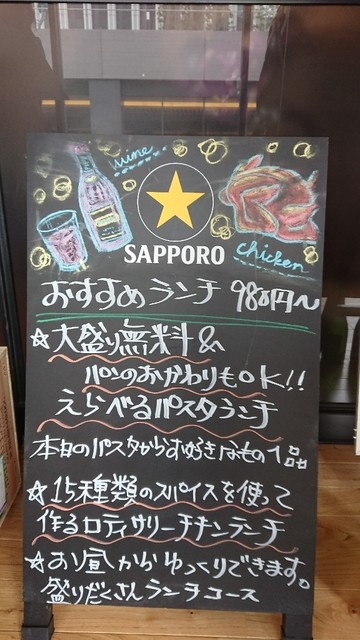 wine
SAPPORO
chicken
おすすめランチ 980円〜
☆大盛り無料&
パンのおかわりもOK!!
えらべるパスタランチ
本日のパスタからお好きなもの1品
☆15種類のスパイスを使って
作るロティサリーチキンランチ
☆お昼からゆっくりできます。
盛りだくさんランチコース